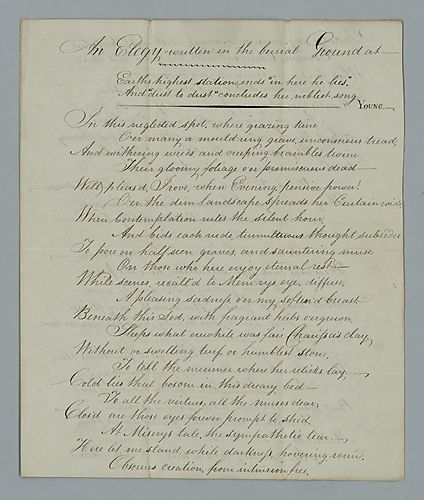 An Elegy written in the burial Ground at
Earths highest station, ends "in here he lies,"
And "dust to dust" concludes her noblest song.
Young
In this neglected spot, where grazing kine
O'er many a mould'ring grave, unconscious tread,
And withering weeds and creeping brambles twine
Their gloomy foliage o'er promiscuous dead
Well pleas'd, I rove, when Evening, pensive power!
O'er the dim landscape spreads her Curtain wide
When Contemplation rules the silent hour,
And bids each rude, tumultuous thought subside
To pore on half seen graves, and sauntering muse
On those who here enjoy eternal rest
While scenes, recall'd to Mem'rys eye, diffuse,
A pleasing sadness o'er my soften'd breast
Beneath this Sod, with fragrant herbs o'ergrown
Sleeps what erewhile was fair Charissa's clay,
Without or swelling turf, or humblest stone,
To tell the mourner where her relicks lay,
Cold lies that bosom in this dreary bed
To all the virtues, all the muses dear,
Clos'd are those eyes forever prompt to shed
At Miserys tale, the sympathetic tear
Here let me stand, while darkness, hovering round,
Obscures creation, from intrusion free,